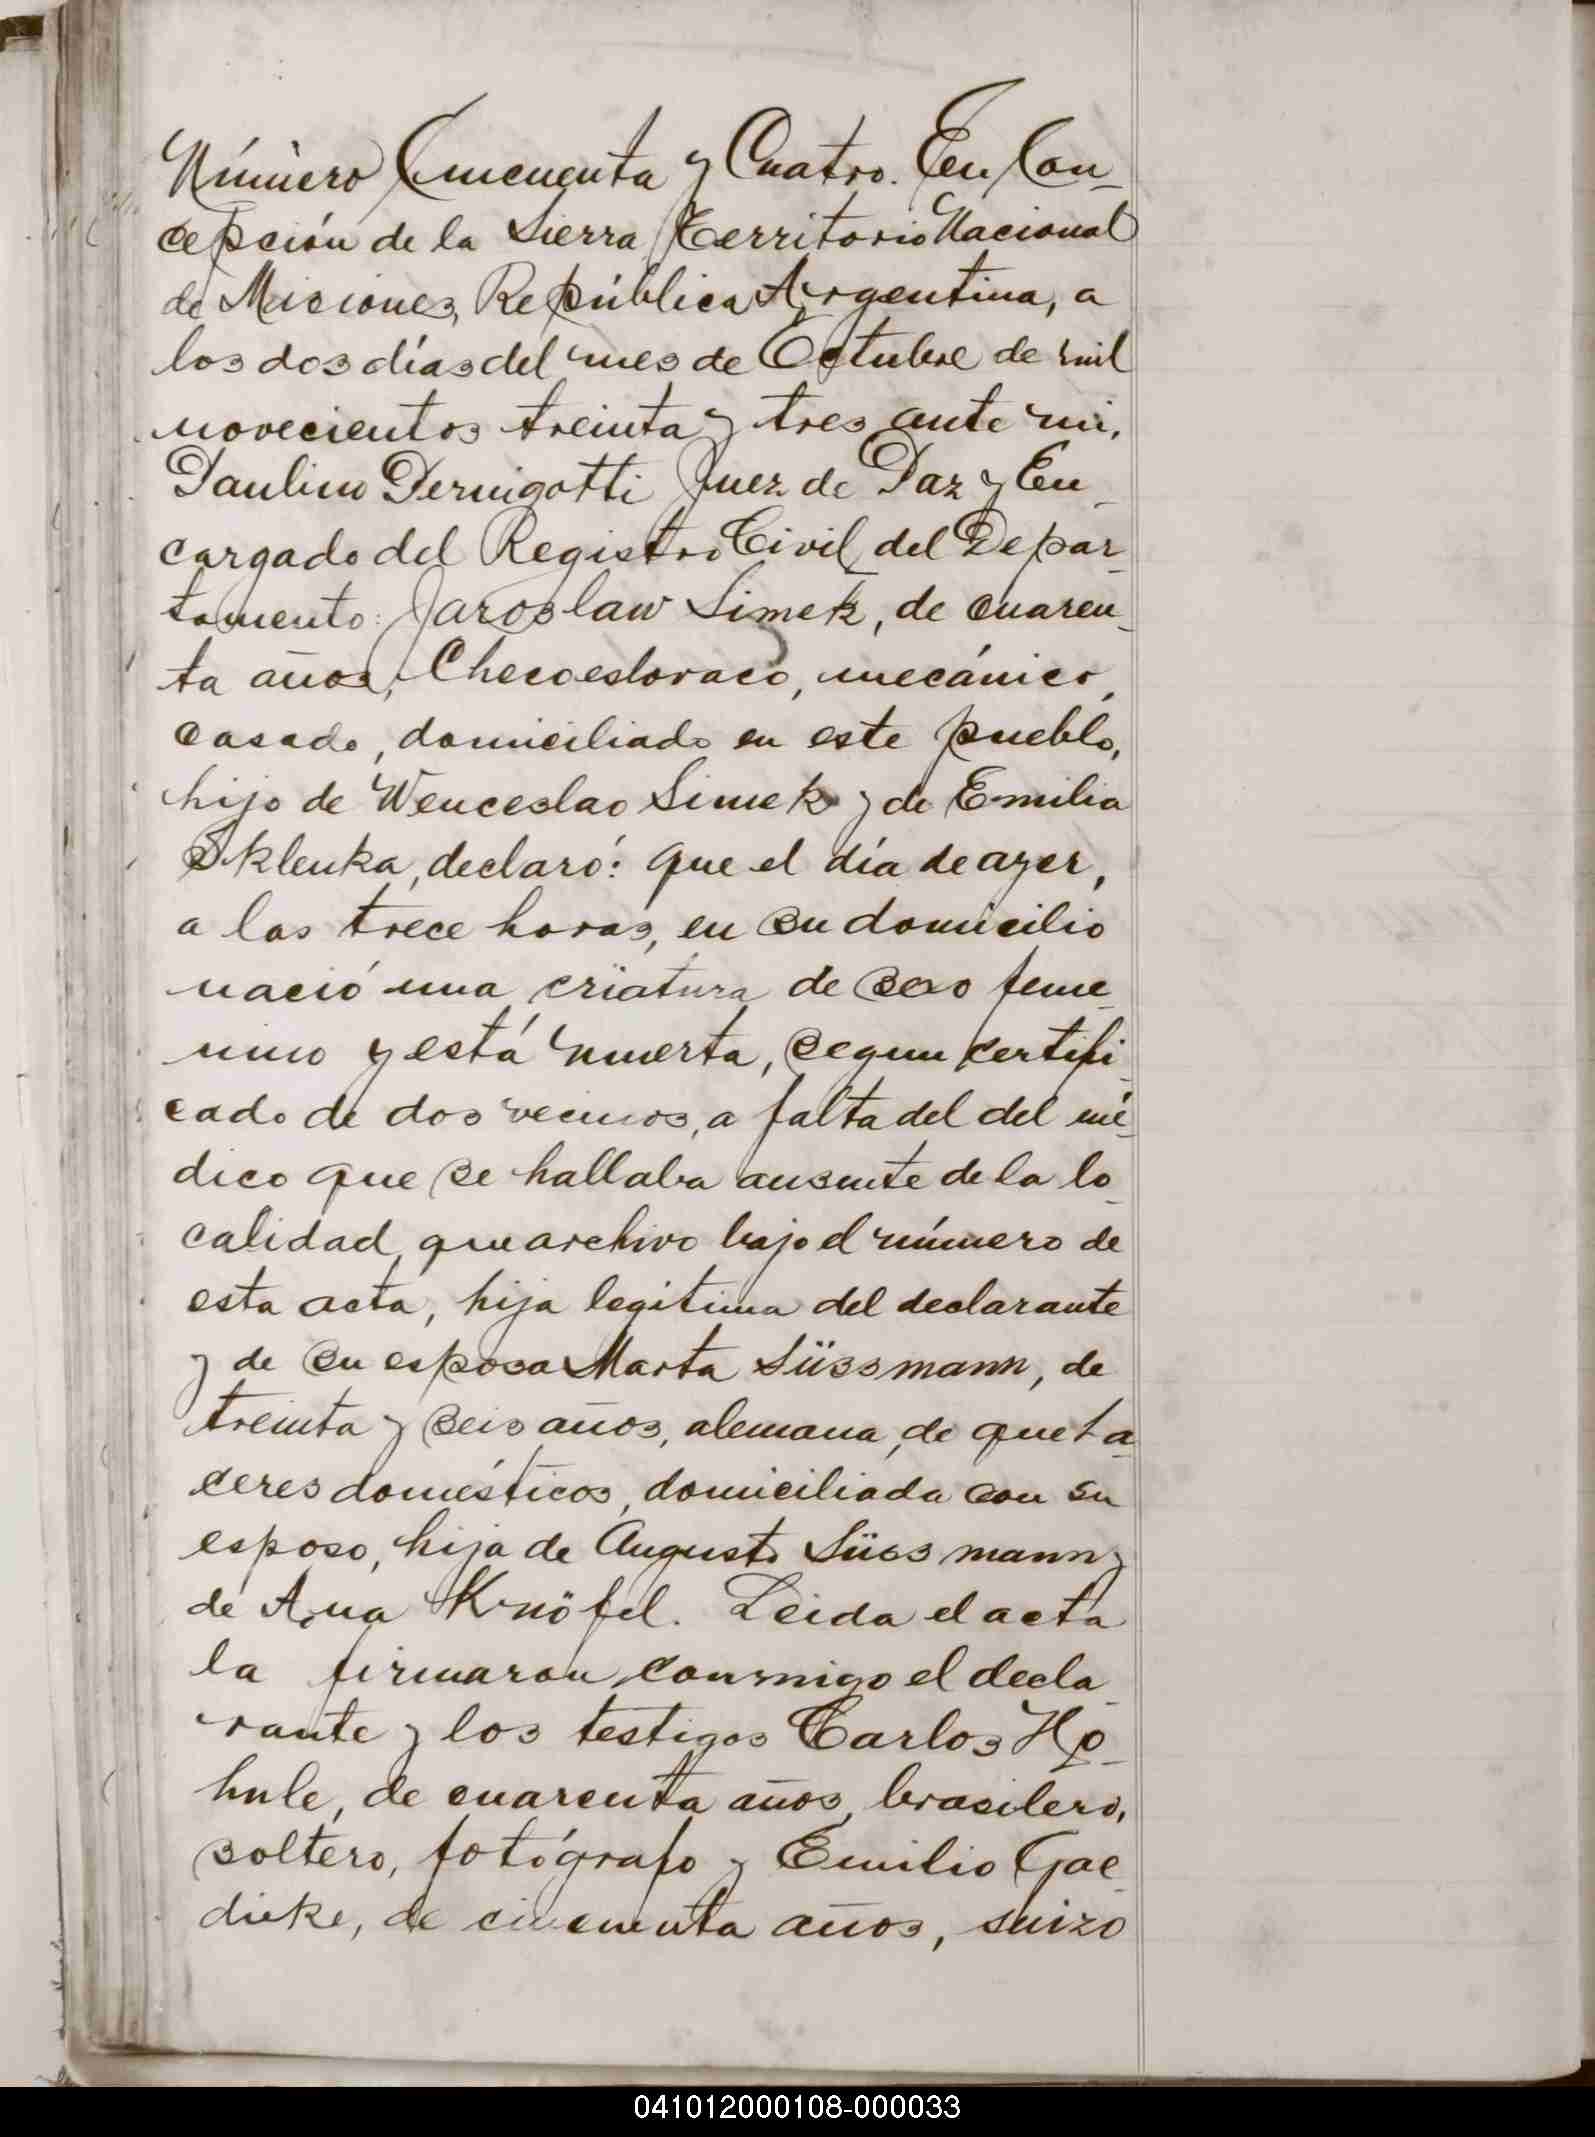 Número Cincuenta y Cuatro. En Con-
cepción de la Sierra Territorio Nacional
de Misiones, República Argentina, a
los dos días del mes de Octubre de mil
novecientos treinta y tres ante mi,
Paulino Pernigotti Juez de Paz y En-
cargado del Registro Civil del Depar-
tamento: Jaroslaw Simek, de cuaren-
ta años, Checoeslovaco, mecánico,
casado, domiciliado en este pueblo,
hijo de Wenceslao Simek y de Emilia
Sklenka, declaró: que el día de ayer,
a las trece horas, en su domicilio
nació una criatura de sexo feme-
nino y está muerta, segun certifi-
cado de dos vecinos, a falta del del mé-
dico que se hallaba ausente de la lo-
calidad, que archivo bajo el número de
esta acta, hija legitima del declarante
y de su esposa Marta Süssmann, de
treinta y seis años, alemana, de queha-
ceres domésticos, domiciliada con su
esposo, hija de Augusto Süssmann y
de Ana Knöfel. Leida el acta
la firmaron conmigo el decla-
rante y los testigos Carlos Ho-
hule, de cuarenta años, brasilero,
soltero, fotógrafo y Emilio Gae-
dicke, de cincuenta años, suizo
041012000108-000033